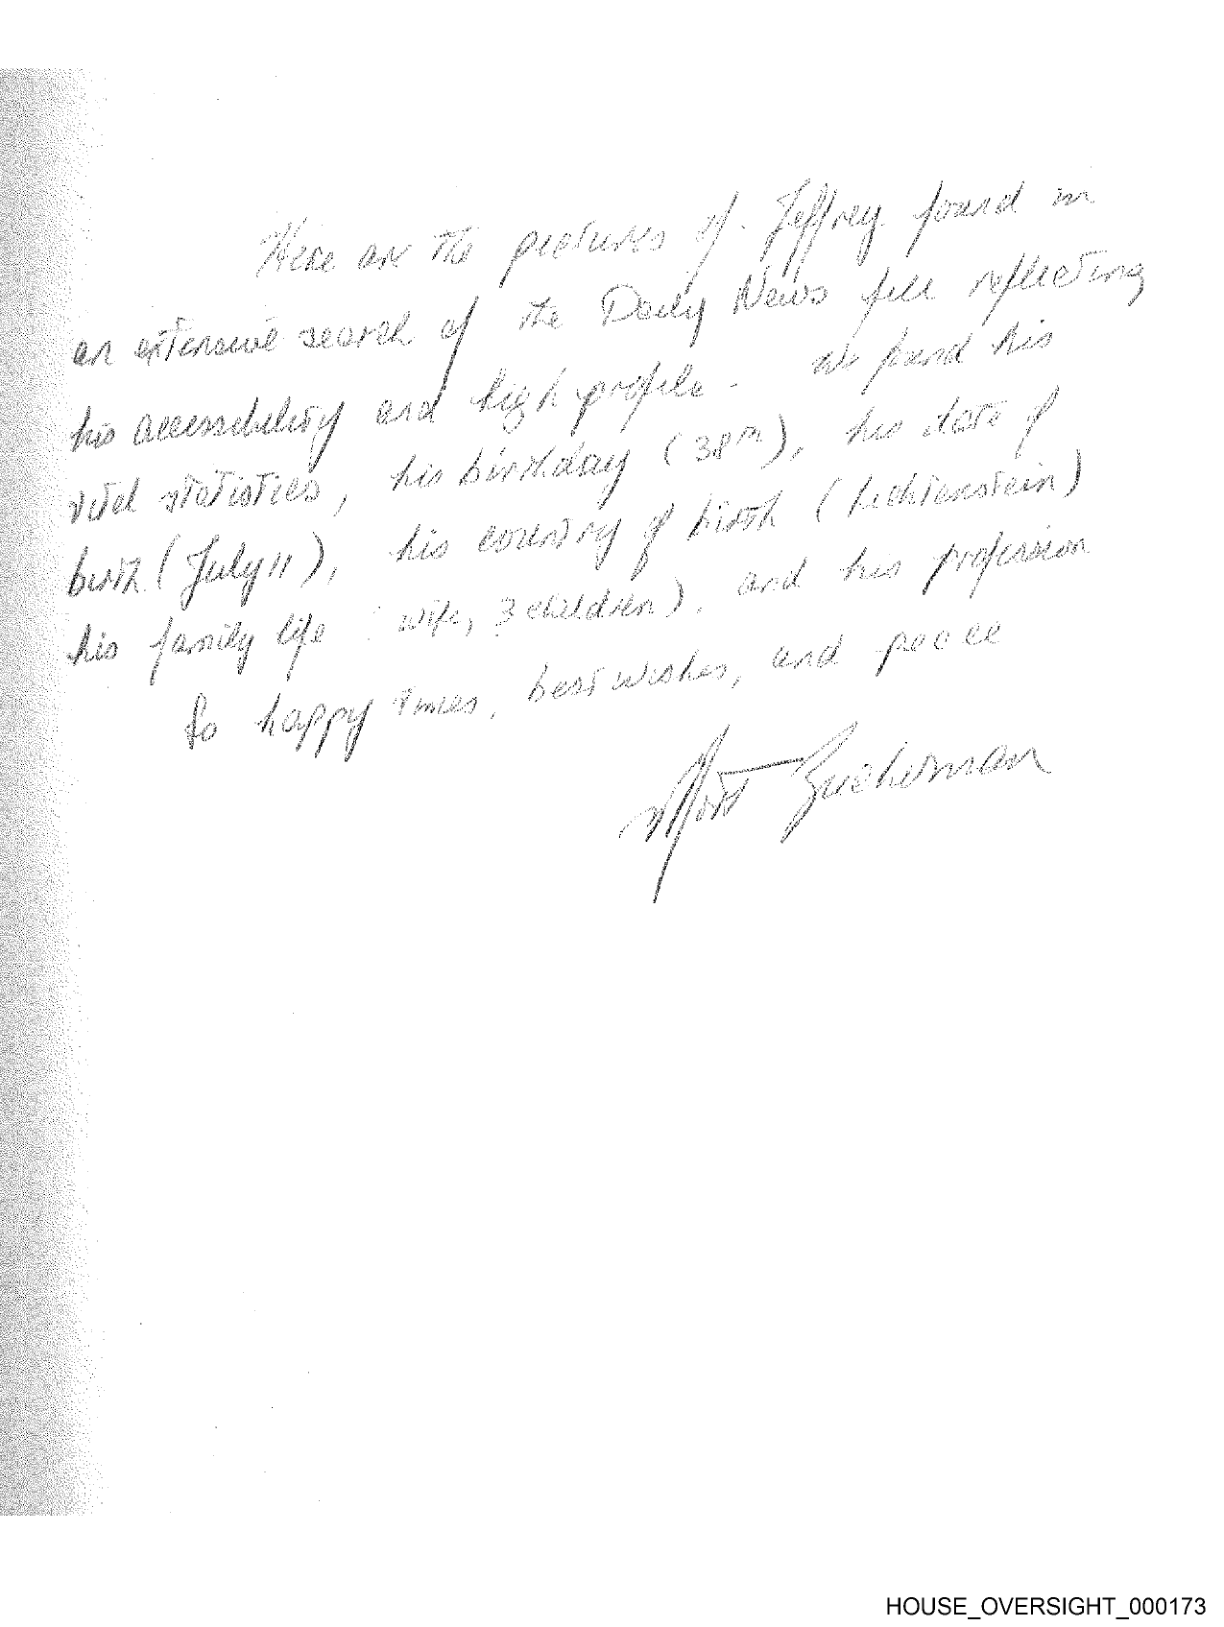 Here are the pictures of Jeffrey found in
an extensive search of the Daily News file reflecting
his accessibility and high profile - we found his
vital statistics, his birthday (38th), his date of
birth (July 11), his country of birth (Lichtenstein)
his family life (wife, 3 children), and his profession
To happy times, best wishes, and peace
Mort Zuckerman
HOUSE_OVERSIGHT_000173